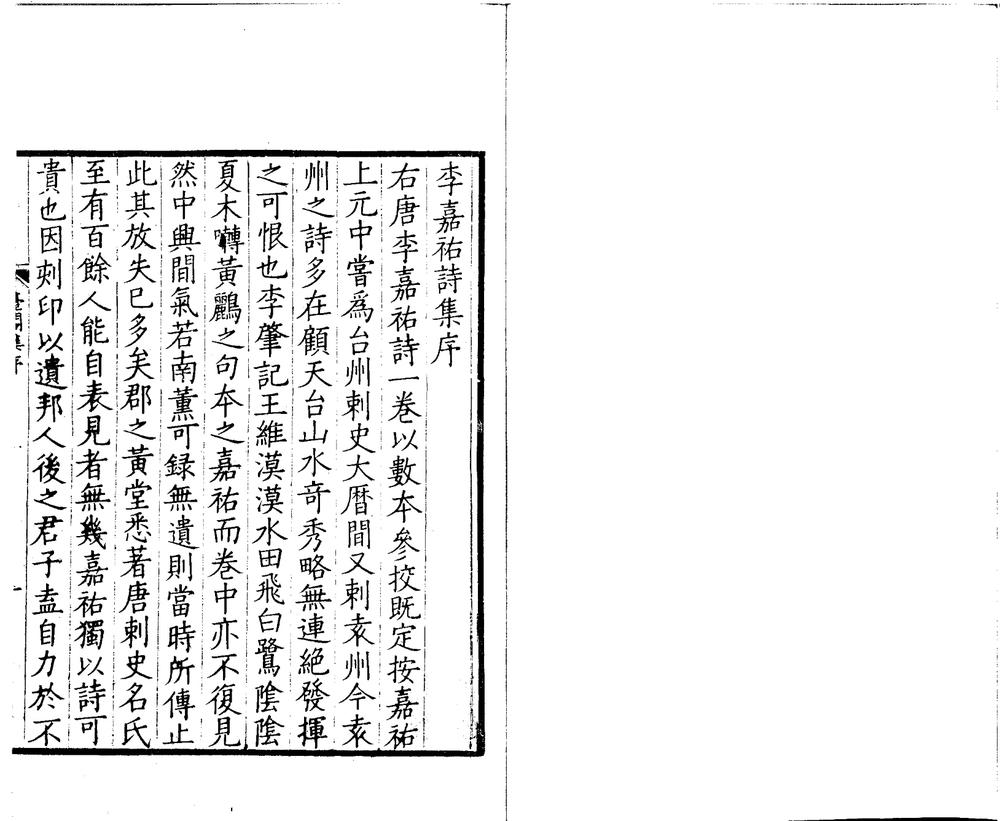 李嘉祐詩集序
右唐李嘉祐詩一卷以數本參挍既定按嘉祐
上元中嘗爲台州刺史大曆間又刺袁州今袁
州之詩多在顧天台山水奇秀略無連絕發揮
之可恨也李肇記王維漠漠水田飛白鷺陰陰
夏木囀黃鸝之句夲之嘉祐而卷中亦不復見
然中興間氣若南薰可録無遺則當時所傳止
此其放失已多矣郡之黃堂悉著唐刺史名氏
至有百餘人能自表見者無幾嘉祐獨以詩可
貴也因刻印以遺邦人後之君子盍自力於不
臺閣集序
一